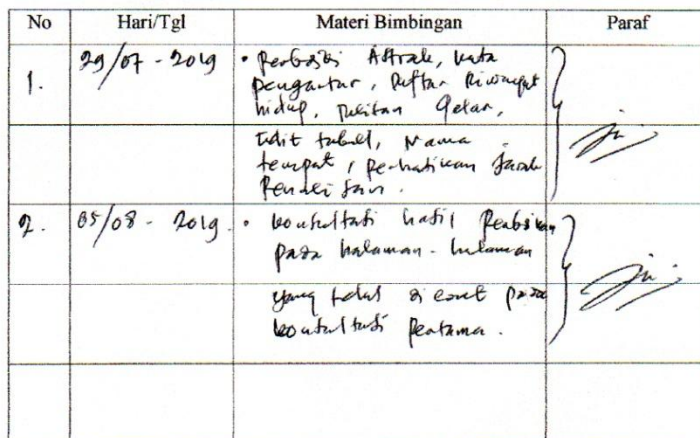 No Hari/Tgl Materi Bimbingan Paraf
1. 29/07 - 2019 • Perbaiki Abstrak, kata
pengantar, Daftar Riwayat
hidup, Gelar,
Edit tabel, Nama
tempat, perhatikan Jarak
2. 05/08 - 2019. • konsultasi hasil Perbaikan
pada halaman - halaman
yang telah di coret pada
konsultasi Pertama.